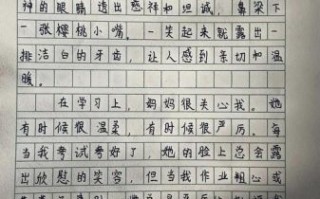 神的眼睛透出慈祥和坦诚，鼻梁下
一张樱桃小嘴。一笑起来就露出一
排洁白的牙齿，让人感到亲切和温
暖。
在学习上，妈妈很关心我。她
有时候很温柔，有时候很严厉。每
当我考试考好了，她的脸上总会露
出欣慰的笑容，但当我作业粗心或